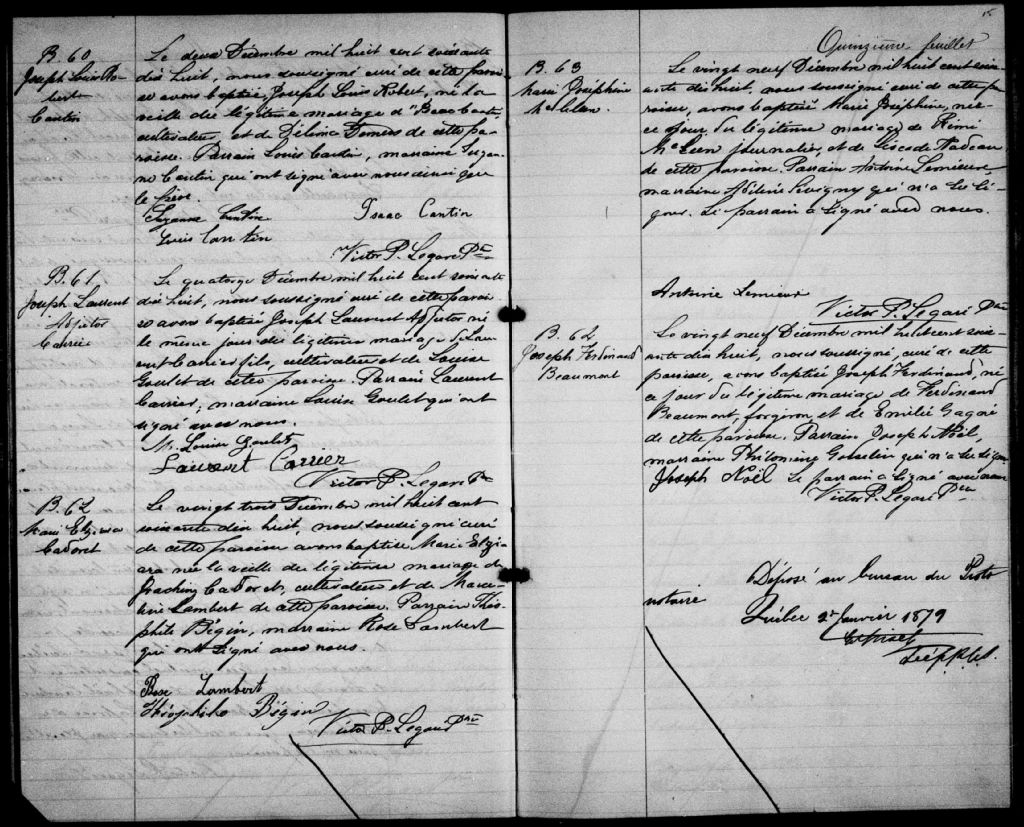 B. 60
Joseph Louis Ro-
bert
Cantin
Le deux Décembre mil huit cent soixante
dix huit, nous soussigné curé de cette parois
se avons baptisé Joseph Louis Robert, né la
veille du légitime mariage d'Isaac Cantin,
cultivateur, et de Délima Demers de cette pa-
roisse. Parrain Louis Cantin, marraine Suzan-
ne Cantin qui ont signé avec nous ainsi que
le père.
Suzanne Cantin
Isaac Cantin
Louis Cantin
Victor P. Legaré Ptre
B. 61
Joseph Laurent
Adjutor
Carrier
Le quatorze Décembre mil huit cent soixante
dix huit, nous soussigné curé de cette parois
se avons baptisé Joseph Laurent Adjutor né
le même jour du légitime mariage de Lau-
rent Carrier fils, cultivateur et de Louise
Goulet de cette paroisse. Parrain Laurent
Carrier, marraine Louise Goulet qui ont
signé avec nous.
M. Louise Goulet
Laurent Carrier
Victor P. Legaré Ptre
B. 62
Marie Elzéara
Cadoret
Le vingt trois Décembre mil huit cent
soixante dix huit, nous soussigné curé
de cette paroisse avons baptisé Marie Elzé-
ara née la veille du légitime mariage de
Joachim Cadoret, cultivateur et de Marce-
line Lambert de cette paroisse. Parrain Théo-
phile Bégin, marraine Rose Lambert
qui ont signé avec nous.
Rose Lambert
Théophile Bégin
Victor P. Legaré Ptre
15
Quinzième feuillet
B. 63
Marie Joséphine
McLean
Le vingt neuf Décembre mil huit cent soix-
ante dix huit, nous soussigné curé de cette pa-
roisse, avons baptisé Marie Joséphine, née
ce jour du légitime mariage de Rémi
McLean journalier, et de Nadeau
de cette paroisse. Parrain Antoine Lemieux,
marraine Sévigny qui n'a su si-
gner. Le parrain a signé avec nous.
Antoine Lemieux
Victor P. Legaré Ptre
B. 62
Joseph Ferdinand
Beaumont
Le vingt neuf Décembre mil huit cent soix-
ante dix huit, nous soussigné, curé de cette
paroisse, avons baptisé Joseph Ferdinand, né
ce jour du légitime mariage de Ferdinand
Beaumont, forgeron, et de Emilie Gagné
de cette paroisse. Parrain Joseph Noël,
marraine Philomène Gosselin qui n'a su signer
Joseph Noël le parrain a signé avec nous
Victor P. Legaré Ptre
Déposé au bureau du Proto
notaire
Québec 2 Janvier 1879